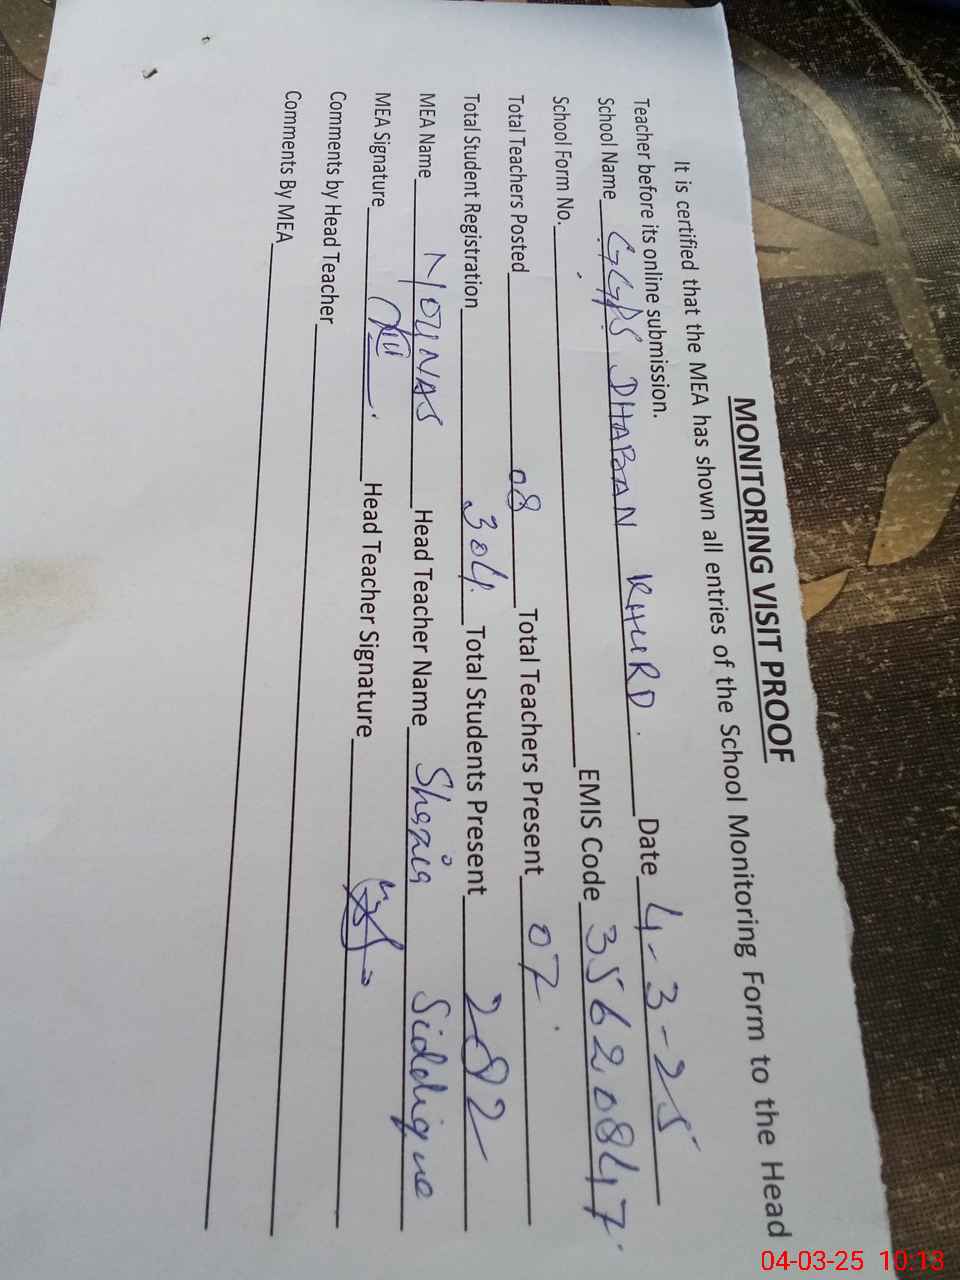 MONITORING VISIT PROOF
It is certified that the MEA has shown all entries of the School Monitoring Form to the Head
Teacher before its online submission.
School Name GGPS DHABAAN KHURD. Date 4-3-25
School Form No. EMIS Code 35620847
Total Teachers Posted 08 Total Teachers Present 07
Total Student Registration 304 Total Students Present 282
MEA Name MOUNAS Head Teacher Name Shazia Siddique
MEA Signature Head Teacher Signature
Comments by Head Teacher
Comments By MEA
04-03-25 10:13